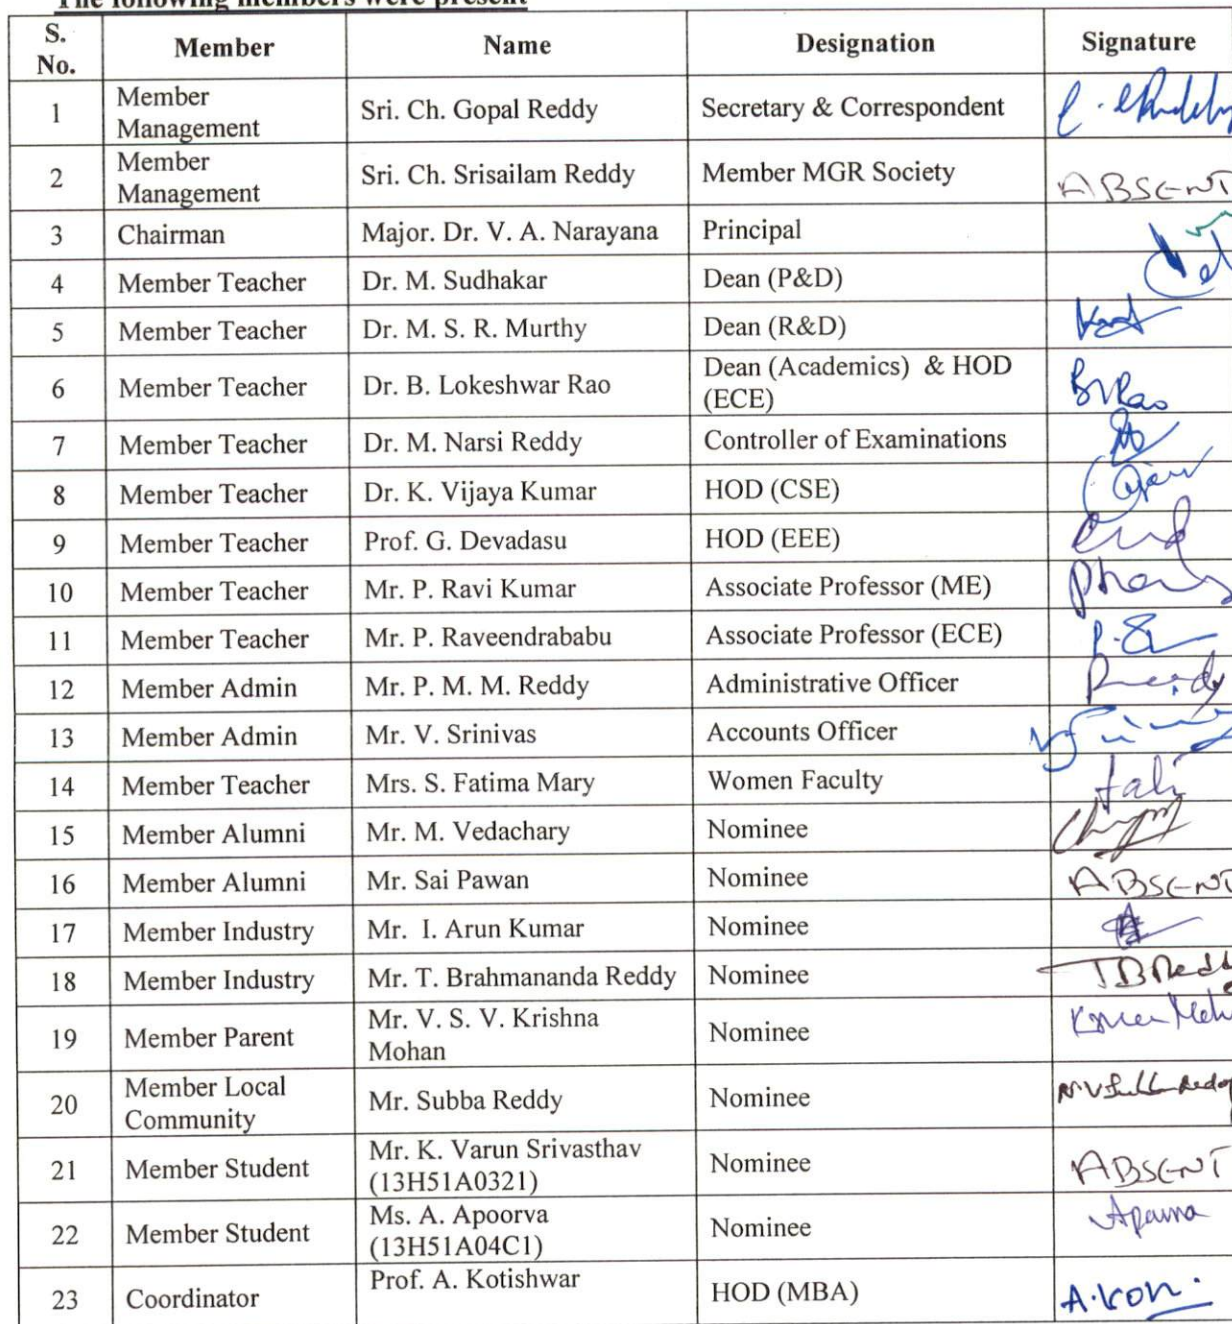 The following members were present
S. No. Member Name Designation Signature
1 Member Management Sri. Ch. Gopal Reddy Secretary & Correspondent
2 Member Management Sri. Ch. Srisailam Reddy Member MGR Society ABSENT
3 Chairman Major. Dr. V. A. Narayana Principal
4 Member Teacher Dr. M. Sudhakar Dean (P&D)
5 Member Teacher Dr. M. S. R. Murthy Dean (R&D)
6 Member Teacher Dr. B. Lokeshwar Rao Dean (Academics) & HOD (ECE) BVRao
7 Member Teacher Dr. M. Narsi Reddy Controller of Examinations
8 Member Teacher Dr. K. Vijaya Kumar HOD (CSE)
9 Member Teacher Prof. G. Devadasu HOD (EEE)
10 Member Teacher Mr. P. Ravi Kumar Associate Professor (ME)
11 Member Teacher Mr. P. Raveendrababu Associate Professor (ECE)
12 Member Admin Mr. P. M. M. Reddy Administrative Officer
13 Member Admin Mr. V. Srinivas Accounts Officer
14 Member Teacher Mrs. S. Fatima Mary Women Faculty
15 Member Alumni Mr. M. Vedachary Nominee
16 Member Alumni Mr. Sai Pawan Nominee ABSENT
17 Member Industry Mr. I. Arun Kumar Nominee
18 Member Industry Mr. T. Brahmananda Reddy Nominee TBRedd
19 Member Parent Mr. V. S. V. Krishna Mohan Nominee
20 Member Local Community Mr. Subba Reddy Nominee
21 Member Student Mr. K. Varun Srivasthav (13H51A0321) Nominee ABSENT
22 Member Student Ms. A. Apoorva (13H51A04C1) Nominee
23 Coordinator Prof. A. Kotishwar HOD (MBA)